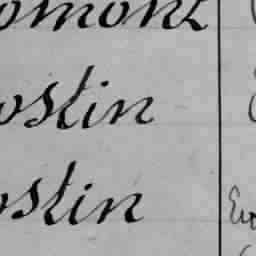 omont
ostin
ostin